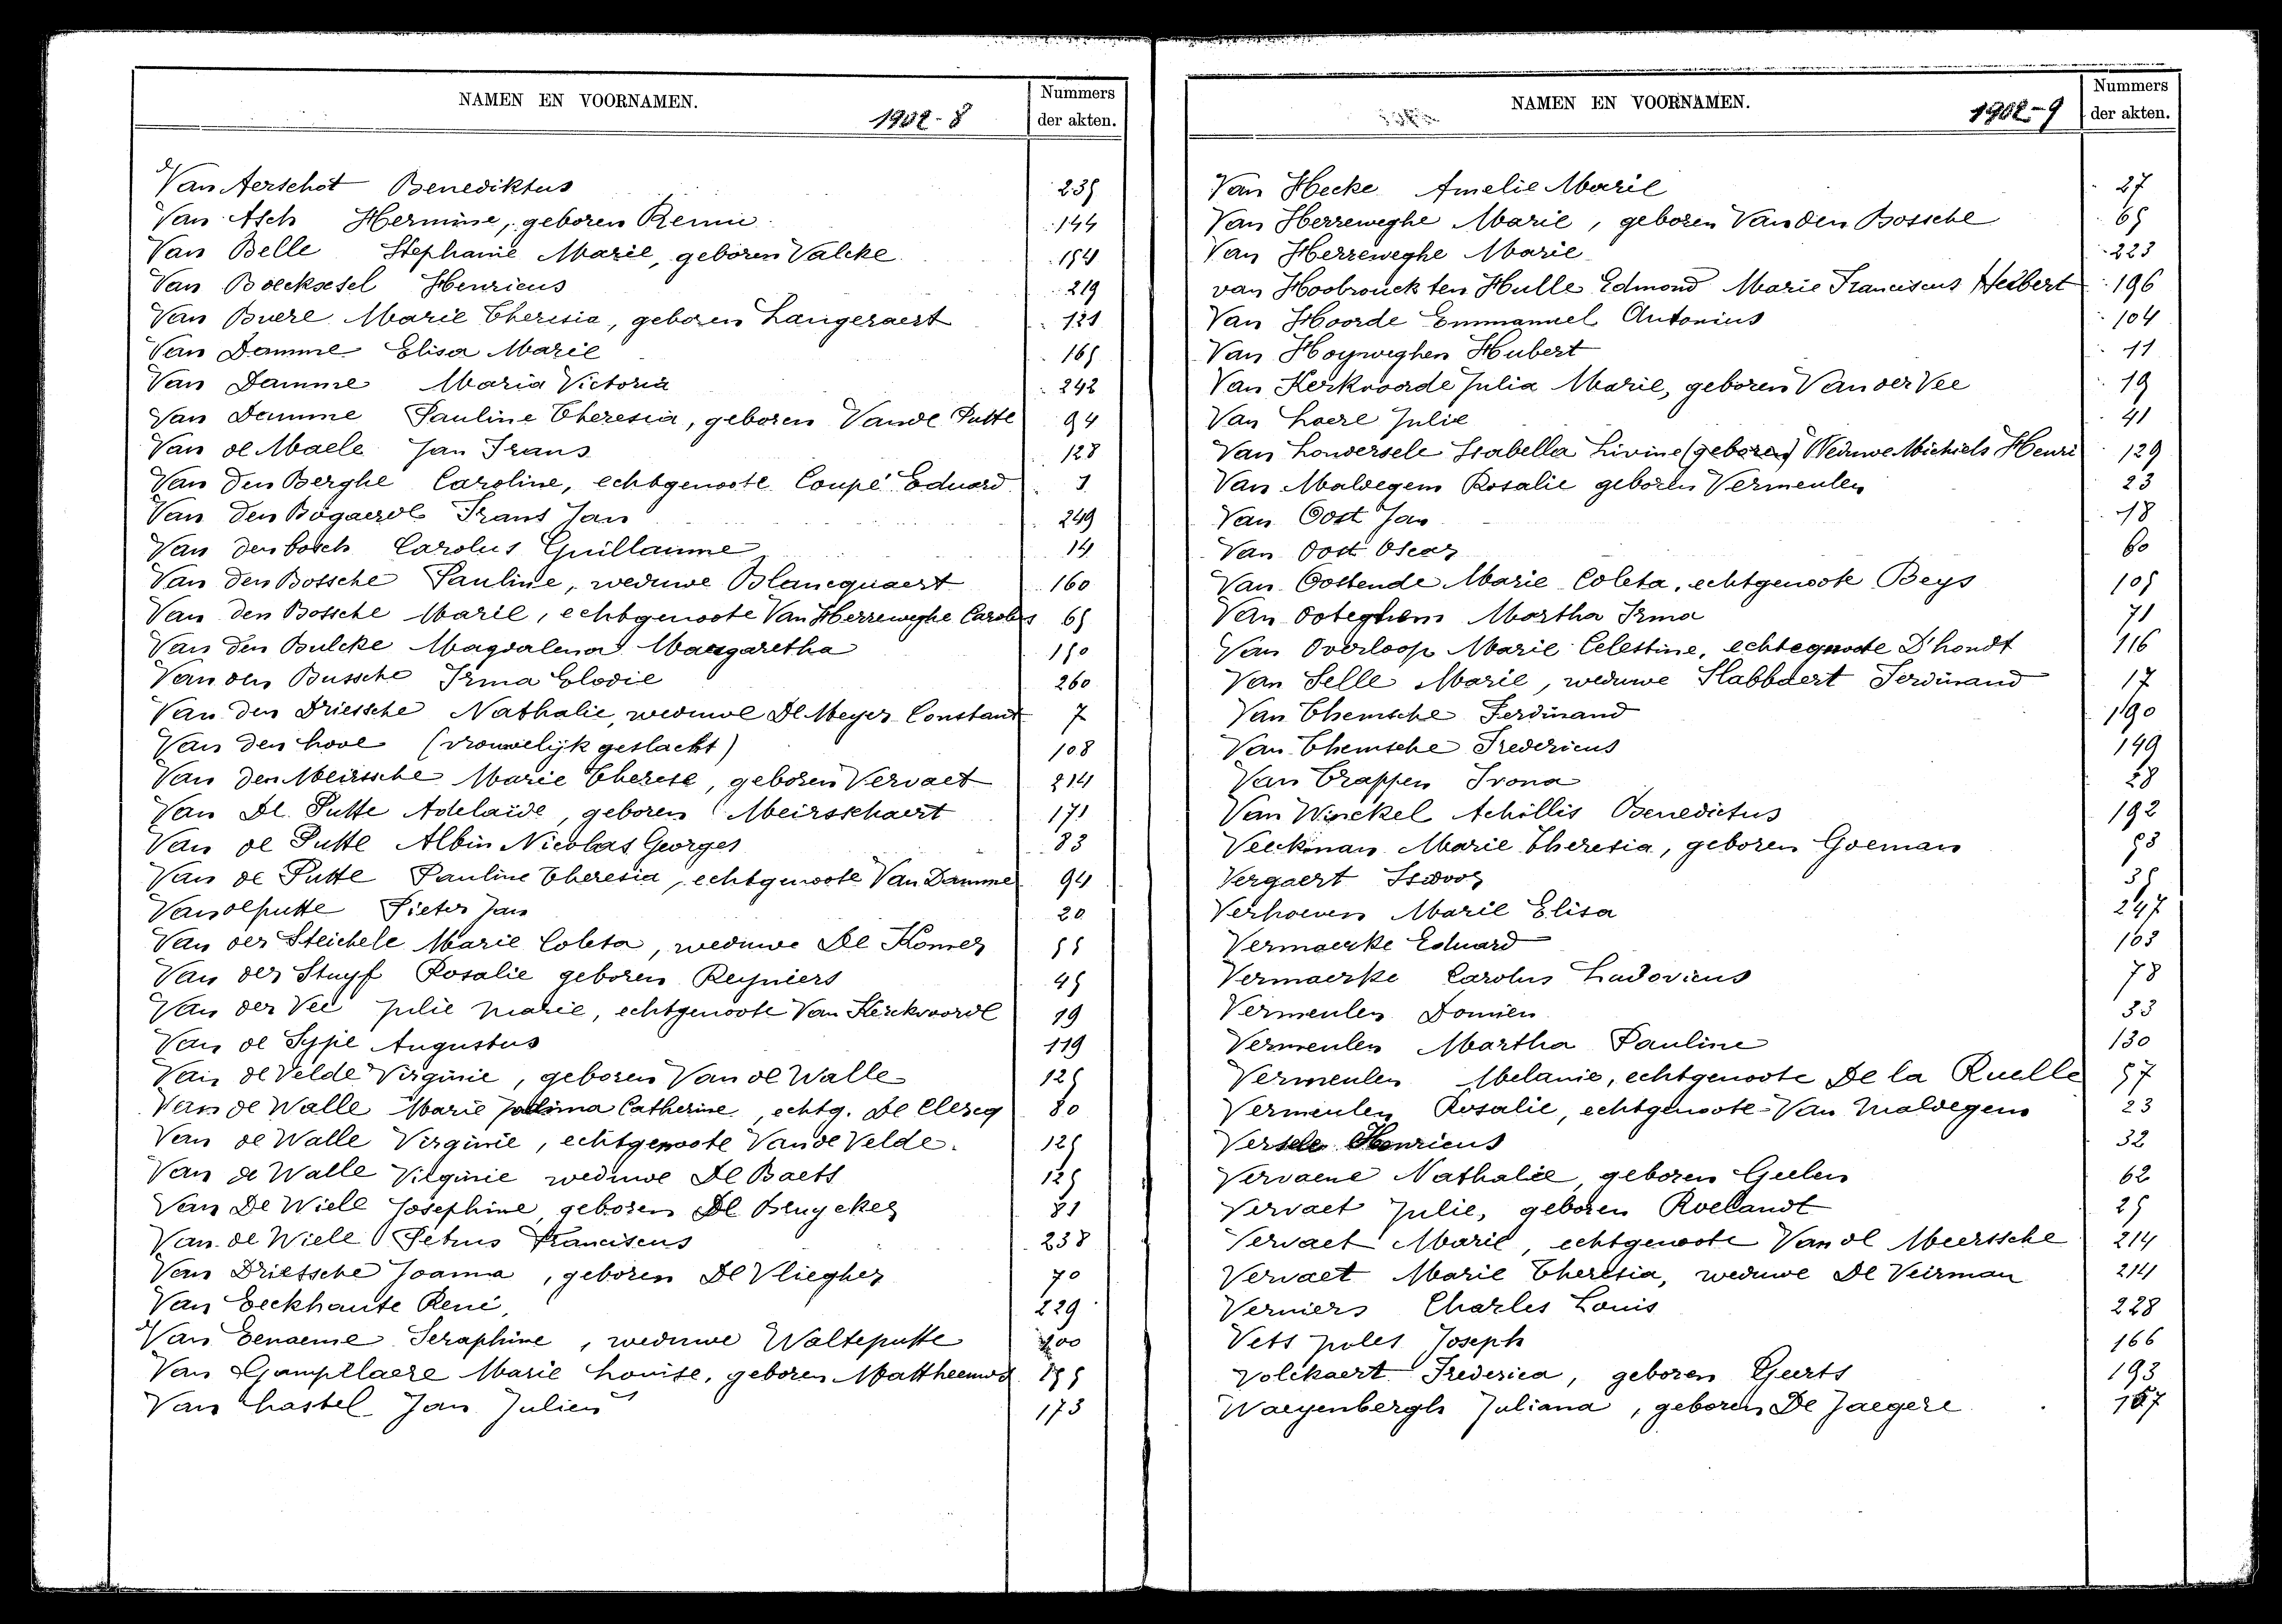 NAMEN EN VOORNAMEN.
1902-8
Nummers
der akten.
Van Aerschot Benediktus 235
Van Asch Hermine, geboren Remie 144
Van Belle Stephanie Marie, geboren Valcke 154
Van Boecksesel Henricus 219
Van Buere Marie Theresia, geboren Langeraert 121
Van Damme Elisa Marie 165
Van Damme Maria Victoria 242
Van Damme Pauline Theresia, geboren Vande Putte 94
Van de Maele Jan Frans 128
Van den Berghe Caroline, echtgenoote Coupé Eduard 1
Van den Bogaerde Frans Jan 249
Van den bosch Carolus Guillaume 14
Van den Bossche Pauline, weduwe Blancquaert 160
Van den Bossche Marie, echtgenoote Van Herreweghe Carolus 65
Van den Bulcke Magdalena Margaretha 150
Van den Bussche Irma Elodie 260
Van den Driessche Nathalie, weduwe De Meyer Constant 7
Van den hove (vrouwelijk geslacht) 108
Van den Meirssche Marie Therese, geboren Vervaet 214
Van De Putte Adelaïde, geboren Meirschaert 171
Van de Putte Albin Nicolas Georges 83
Van de Putte Pauline Theresia, echtgenoote Van Damme 94
Van de putte Pieter Jan 20
Van der Steichele Marie Coleta, weduwe De Komer 55
Van der Stuyf Rosalie geboren Reyniers 45
Van der Vee Julie Marie, echtgenoote Van Kerckvoorde 19
Van de Sype Augustus 119
Van de Velde Virginie, geboren Van de Walle 125
Van de Walle Marie Catherine, echtg. De Clercq 80
Van de Walle Virginie, echtgenoote Van de Velde. 125
Van de Walle Vilginie weduwe De Baets 125
Van De Wiele Josephine, geboren De Bruycker 81
Van de Wiele Petrus Franciscus 238
Van Driessche Joanna, geboren De Vliegher 70
Van Eeckhaute René, 229
Van Eenaeme Seraphine, weduwe Walteputte
Van Gampelaere Marie Louise, geboren Mattheeuws
Van hastel Jan Julien 173
NAMEN EN VOORNAMEN.
1902-9
Nummers
der akten.
Van Hecke Amelie Marie 27
Van Herreweghe Marie, geboren Van den Bossche 65
Van Herreweghe Marie 223
van Hoobrouck ten Hulle Edmond Marie Franciscus Heibert 196
Van Hoorde Emmanuel Antonius 104
Van Hoyweghen Hubert 11
Van Kerkvoorde Julia Marie, geboren Van der Vee 19
Van Loere Julie 41
Van Lowersele Isabella Livine (geboren) Weduwe Michiels Henri 129
Van Maldegem Rosalie geboren Vermeulen 23
Van Oost Jan 18
Van Oost Oscar 60
Van Oostende Marie Coleta, echtgenoote Beys 105
Van Ooteghem Martha Irma 71
Van Overloop Marie Celestine, echtegnoote D'hondt 116
Van Selle Marie, weduwe Slabbaert Ferdinand 17
Van Themsche Ferdinand 190
Van Themsche Fredericus 149
Van Trappen Irona 28
Van Winckel Achillis Benedictus 192
Veeckman Marie Theresia, geboren Goeman 53
Vergaert Isidoor 35
Verhoeven Marie Elisa 247
Vermaerke Eduard 163
Vermaerke Carolus Ludovicus 78
Vermeulen Domien 33
Vermeulen Martha Pauline 130
Vermeulen Melanie, echtgenoote De la Ruelle 57
Vermeulen Rosalie, echtgenoote Van Maldegem 23
Versele Henricus 32
Vervaene Nathalie, geboren Geelen 62
Vervaet Julie, geboren Roelandt 25
Vervaet Marie, echtgenoote Van de Meerssche 214
Vervaet Marie Theresia, weduwe De Veirman 214
Verniers Charles Louis 228
Vets Joles Joseph 166
Volckaert Frederica, geboren Geerts 193
Waeyenbergh Juliana, geboren De Jaegere 157